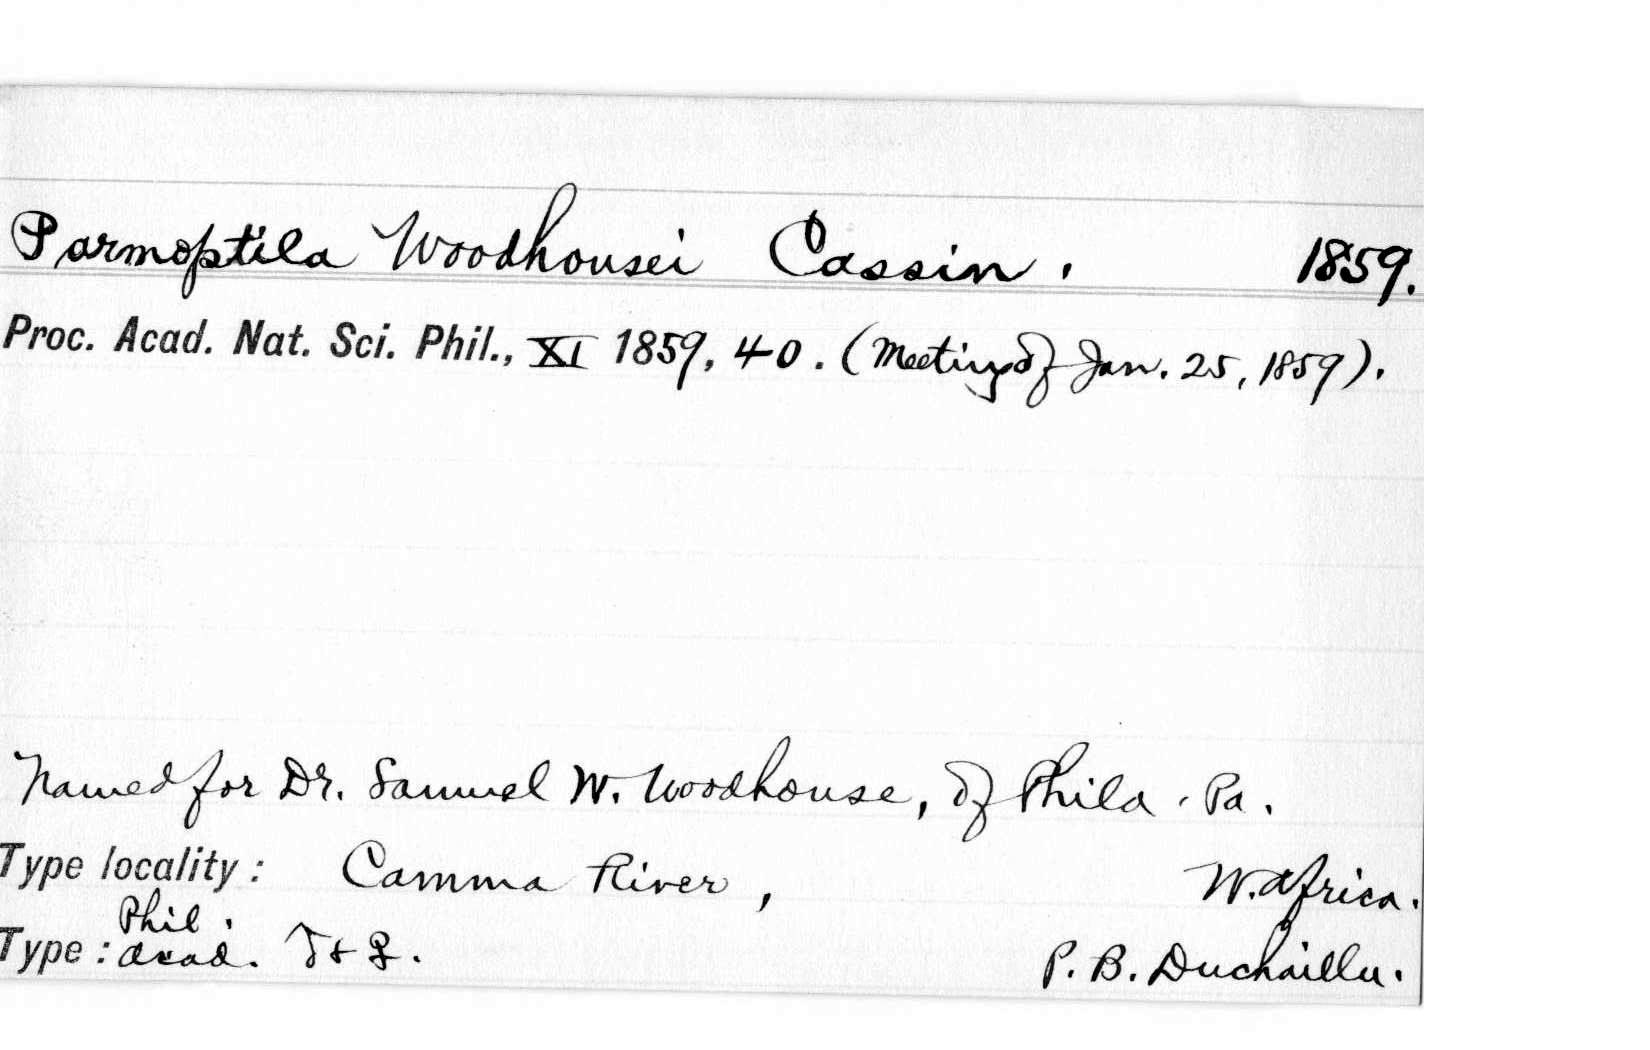 Parmoptila Woodhousei Cassin. 1859.
Proc. Acad. Nat. Sci. Phil., XI 1859, 40. (Meeting of Jan. 25, 1859).
Named for Dr. Samuel W. Woodhouse, of Phila. Pa.
Type locality: Camma River, W. Africa.
Phil.
Type: Acad. ♂ + ♀. P. B. Duchaillu.